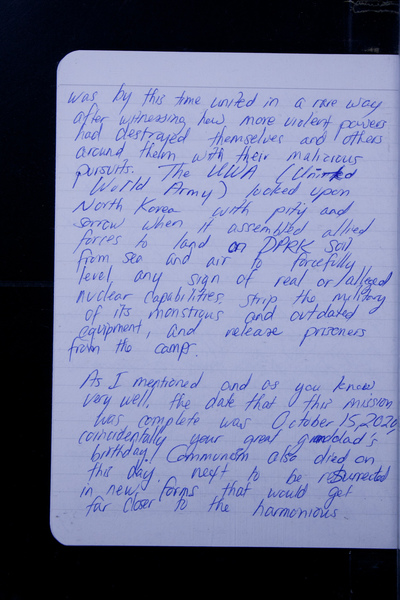 was by this time united in a rare way
after witnessing how more violent powers
had destroyed themselves and others
around them with their malicious
pursuits. The UWA (United
World Army) looked upon
North Korea with pity and
sorrow when it assembled allied
forces to land on DPRK soil
from sea and air to forcefully
level any sign of real or/alleged
nuclear capabilities, strip the military
of its monstrous and outdated
equipment, and release prisoners
from the camps.
As I mentioned and as you know
very well, the date that this mission
was complete was October 15, 2020,
coincidentally your great grandad's
birthday! Communism also died on
this day, next to be resurrected
in new forms that would get
far closer to the harmonious